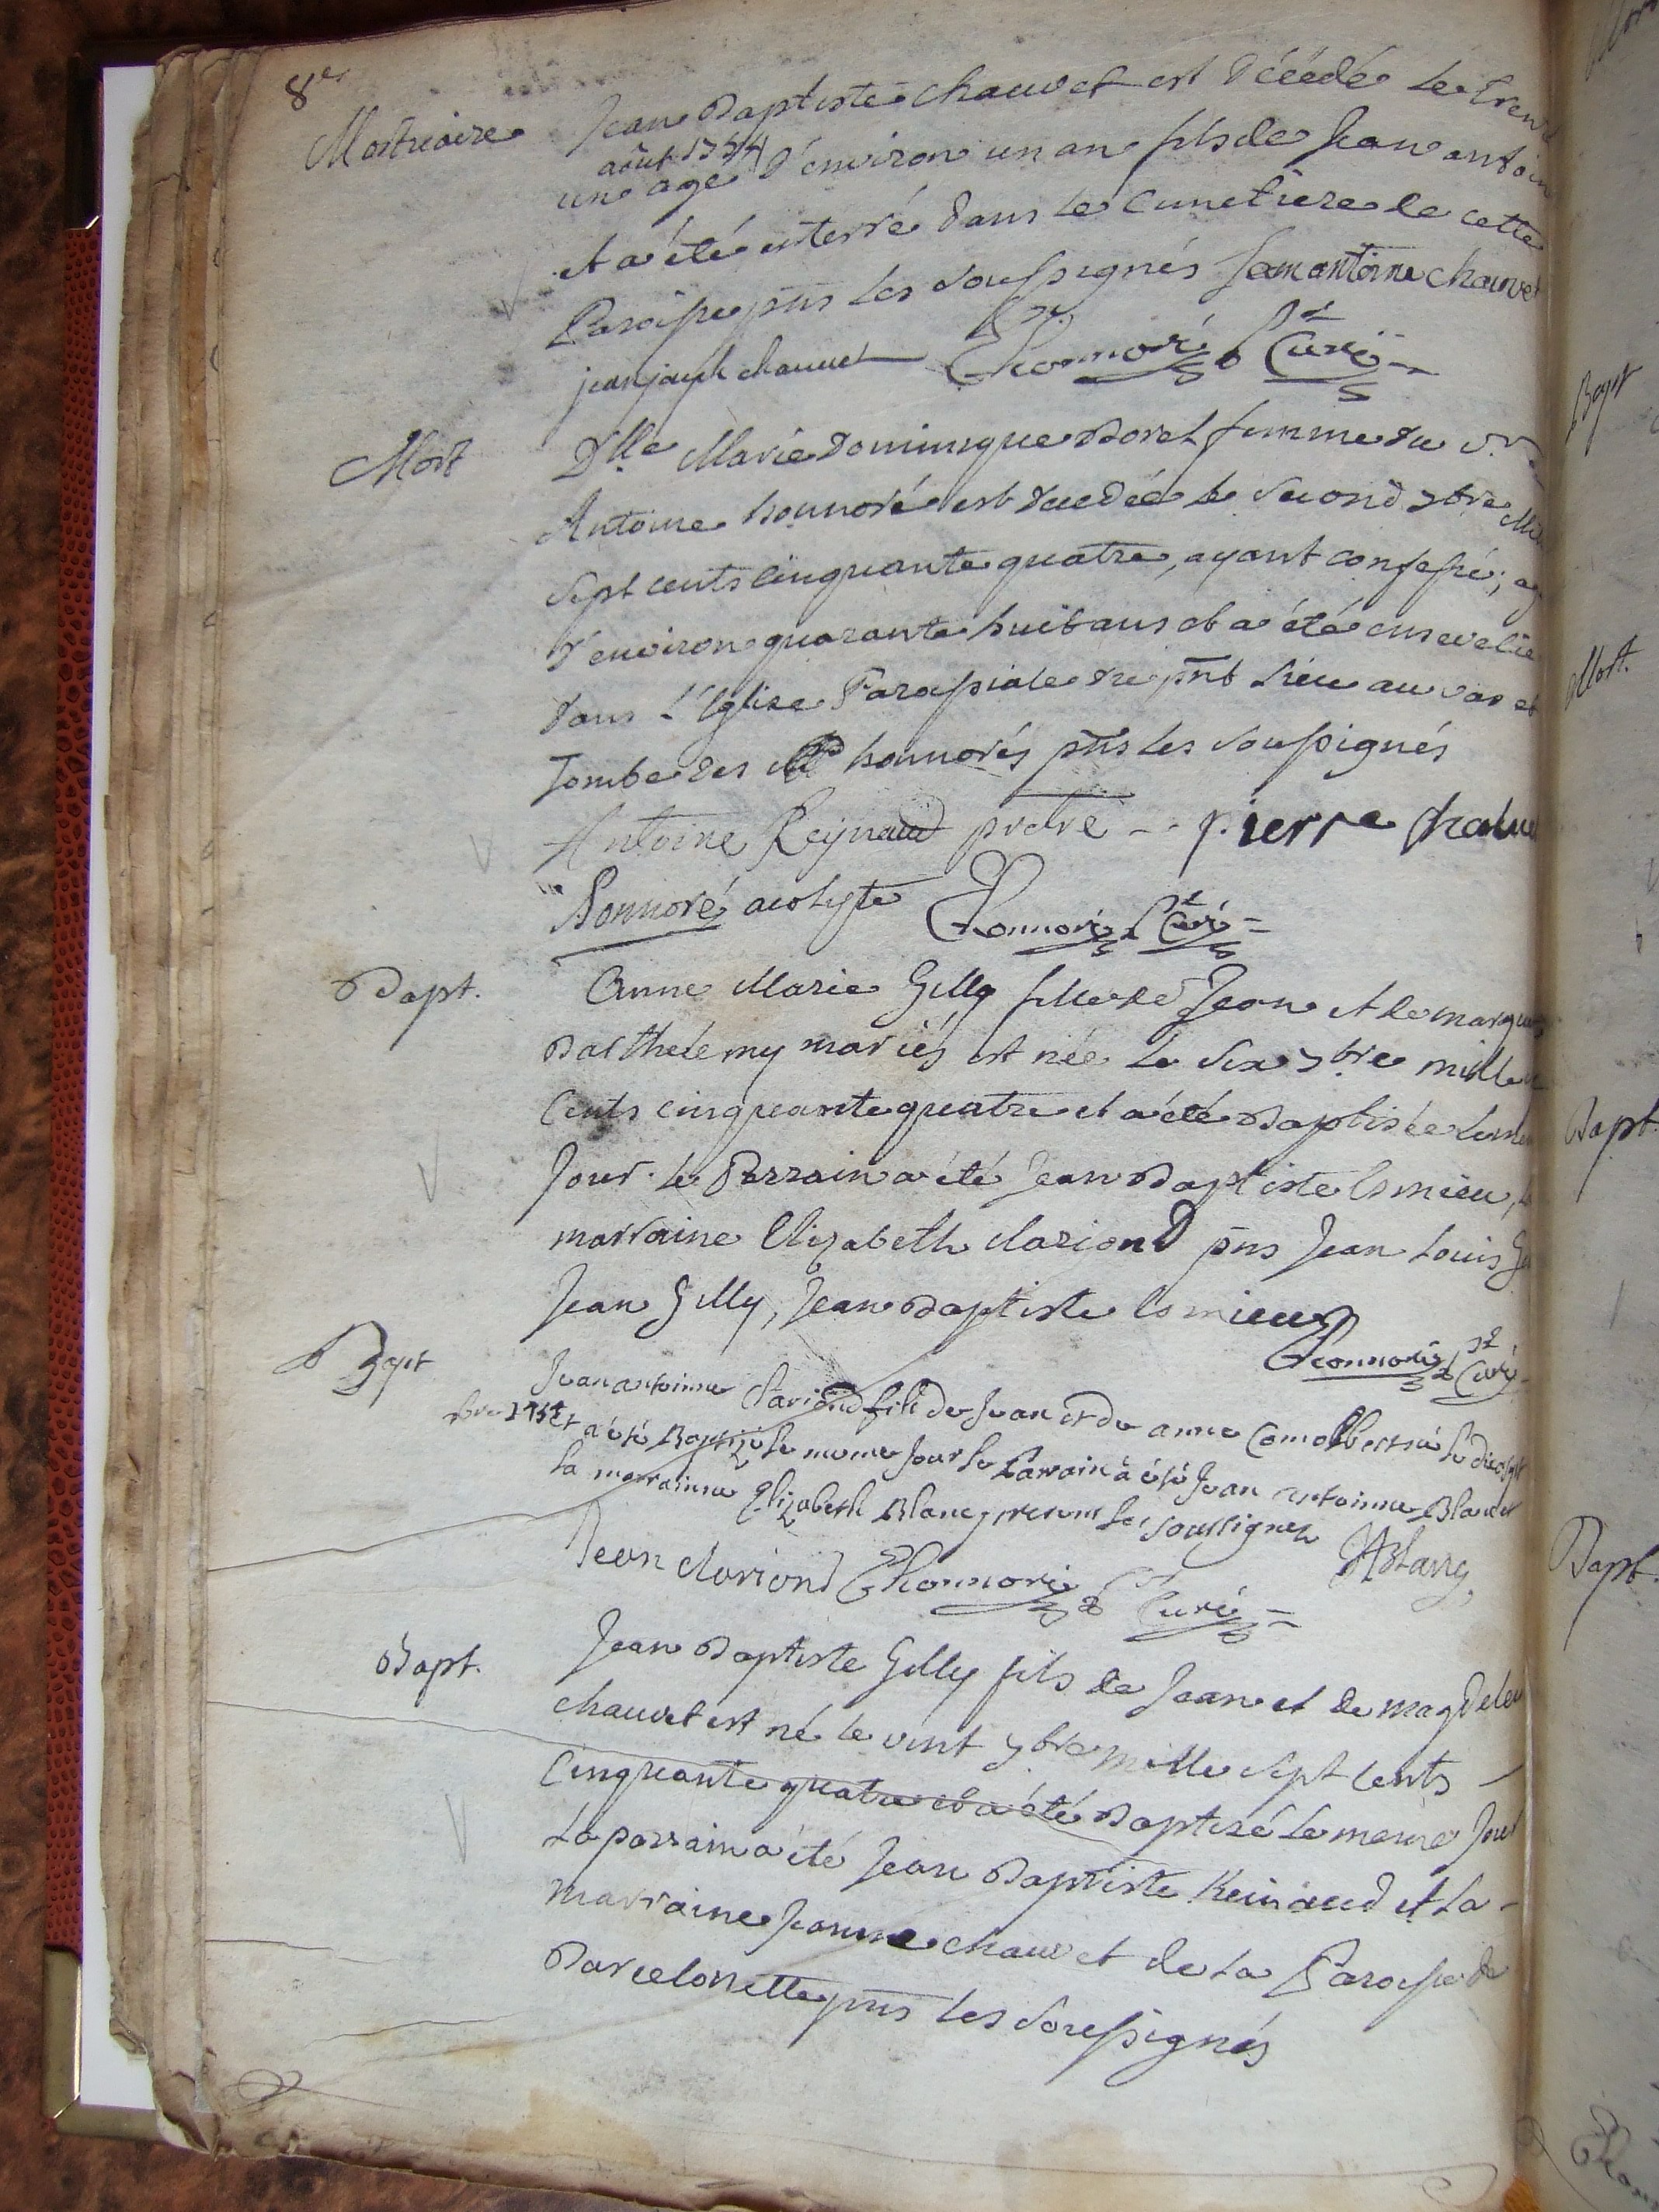 8e
Mortuaire Jean Baptiste chauvet est décédé le tren
août 1754
un age d'environ un an fils de Jean antoin
et a été enterré dans le cimetiere de cette
Paroisse pnts les soussignés Jean antoine chauvet
jean joseph chauvet Honnoré Curé
Mort Dlle Marie Dominique Boret femme du Sr
Antoine honnoré est decedée le second 7bre mil
Sept cents cinquante quatre, ayant confessé; ag
d'environ quarante huit ans et a été ensevelie
dans l'Eglise Paroissiale du pnt Lieu au vas et
Tombe des honnorés pnts les soussignés
Antoine Reynaud pretre -- pierre
Honnoré acolyte Honnoré Curé
Bapt. Anne Marie Gilly fille de Jean et de margue
Barthélemy mariés est née le six 7bre mille
Cents cinquante quatre et a été Baptisée le me
Jour. le Parrain a été Jean Baptiste Esmieu, l
marraine Elizabeth clariond pns Jean Louis
Jean Gilly, Jean Baptiste Esmieu
Honnoré Curé
Bapt Jean antoinne Clariond fils de Jean et de anne né le dix sept
bre 1754 et a été Baptizé le meme Jour le Parrain a été Jean antoinne Blanc et
la marrainne Elizabeth Blanc present les soussignes
Jean clariond Honnoré Curé JABlanc
Bapt. Jean Baptiste Gilly fils de Jean et de magdelen
chauvet est né le vint 7bre mille sept cents
Cinquante quatre et a été Baptisé le meme Jour
Le parrain a été Jean Baptiste Reinaud et la -
marraine Jeanne chauvet de la Paroisse de
Barcelonette pns les soussignés
Bapt
Mort.
Bapt.
Bapt.